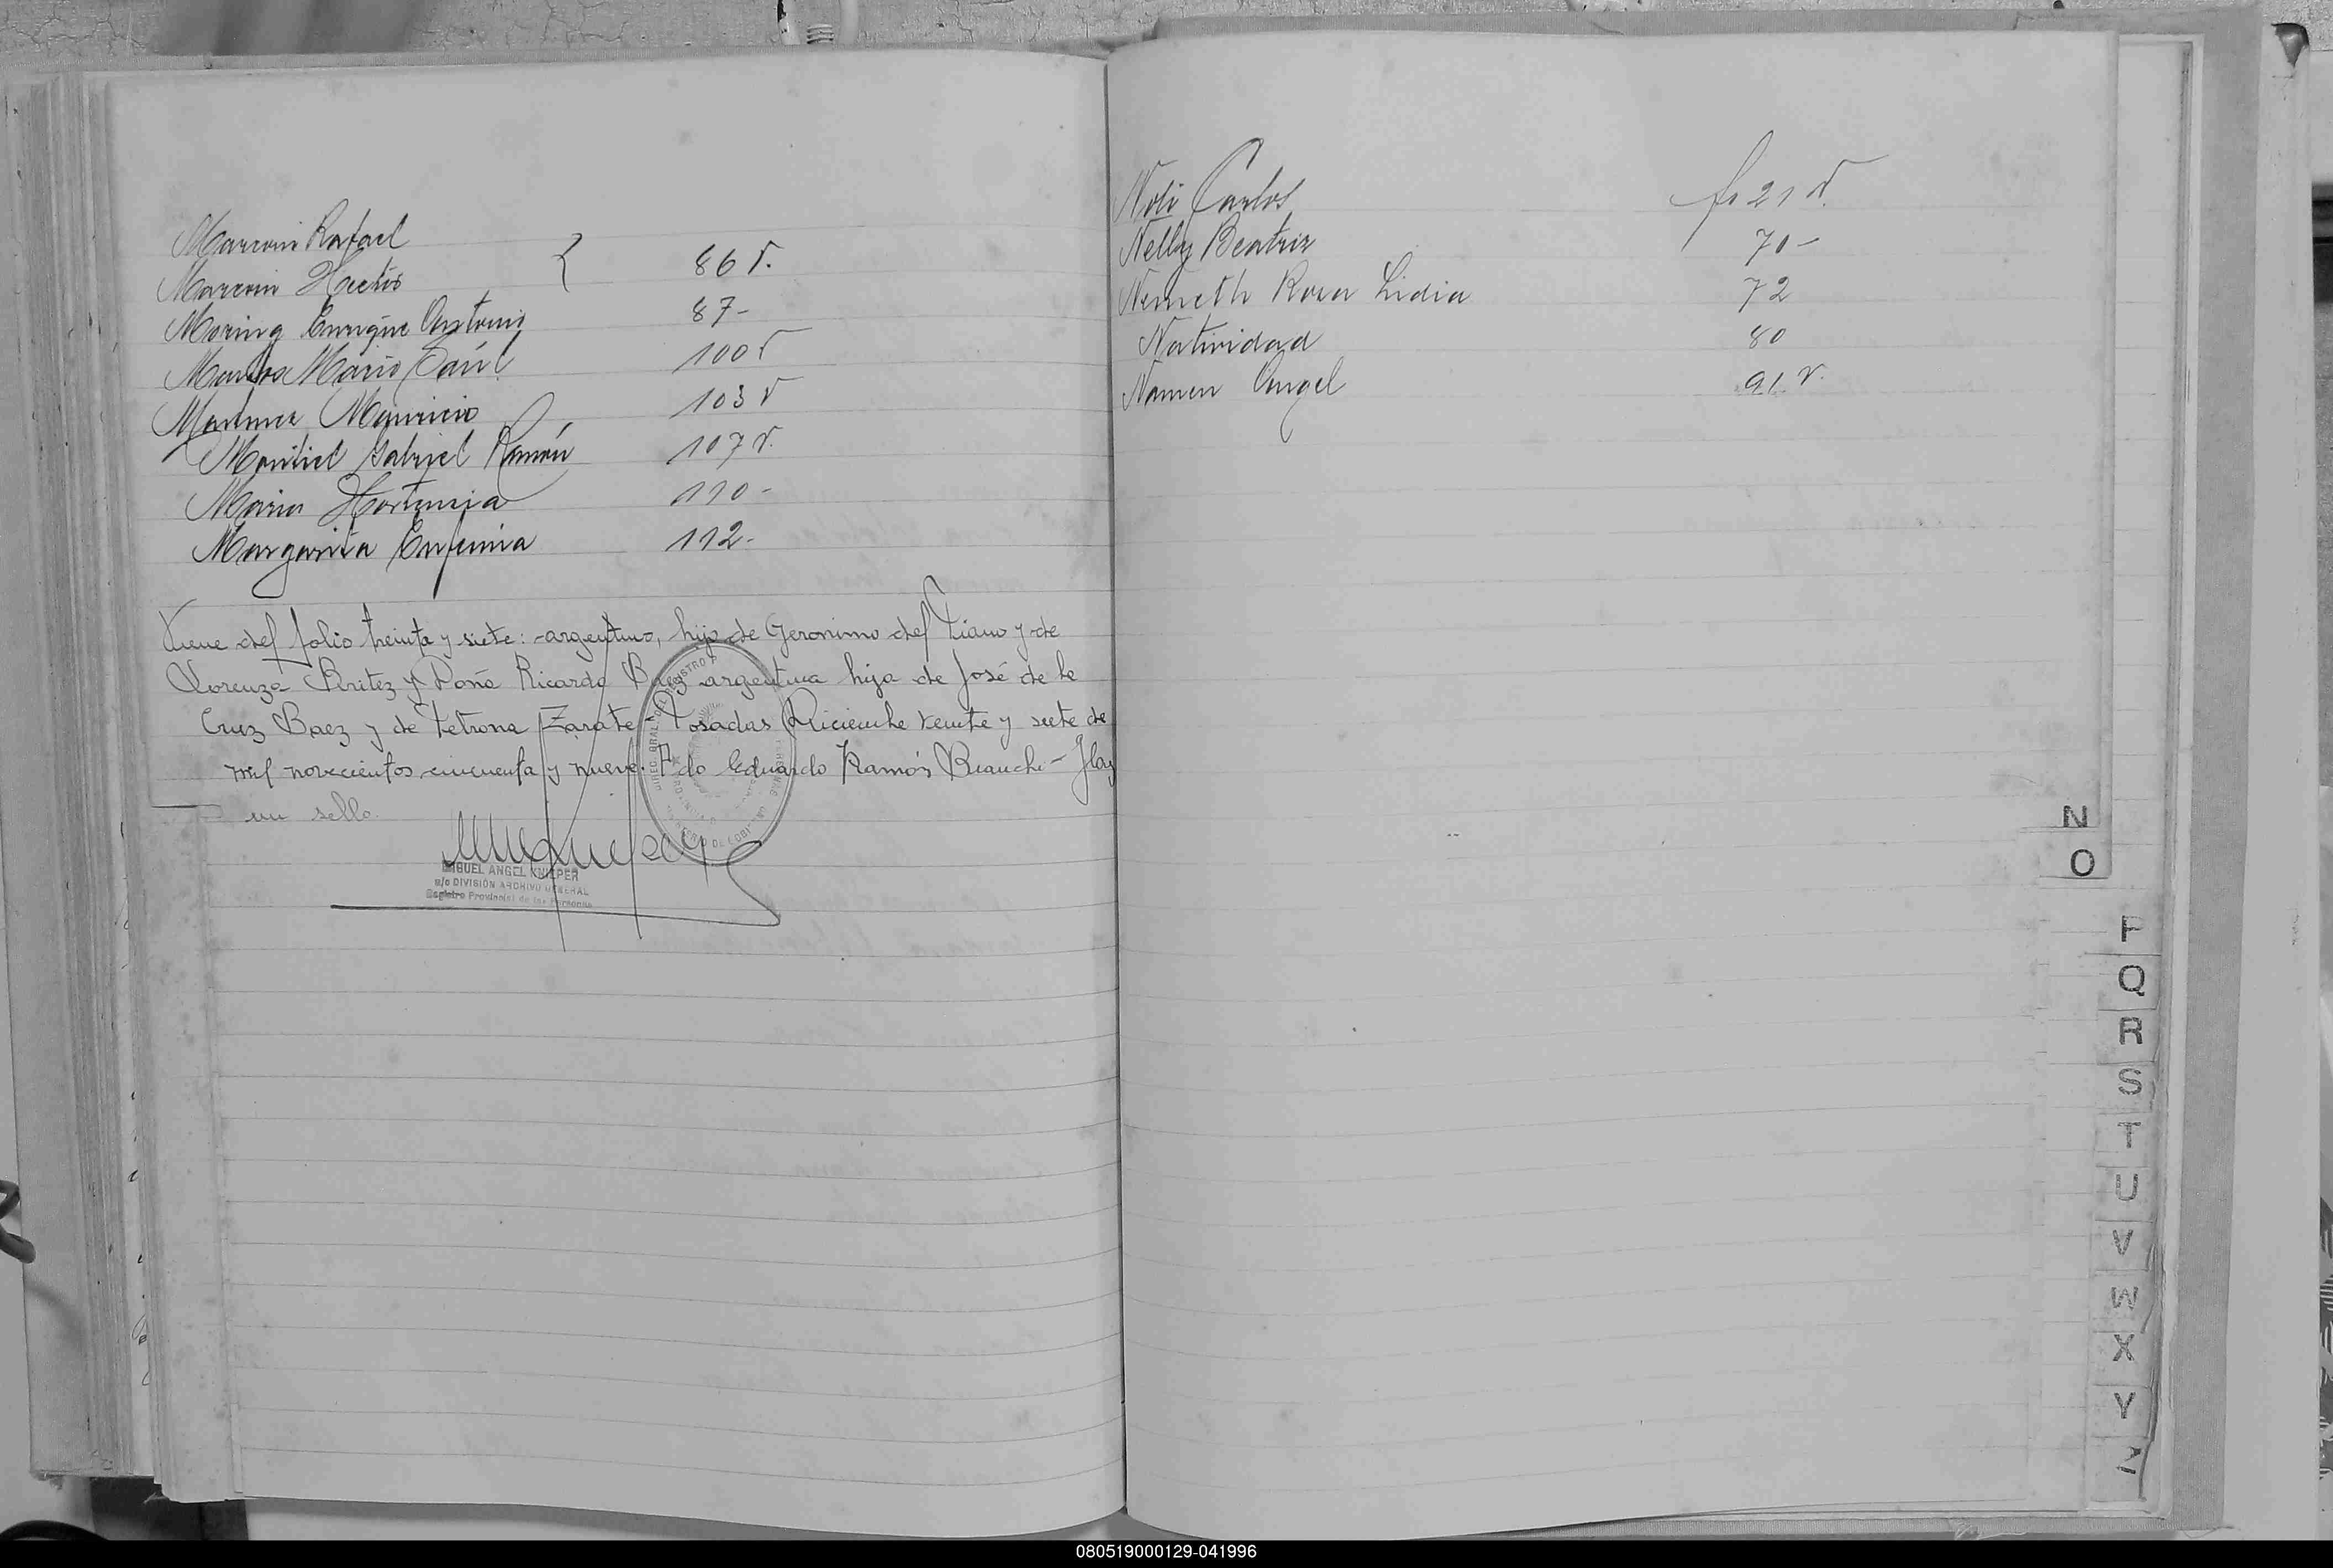 Marconi Rafael
Marconi Hector } 86 v.
Moring Enrique Antonio 87-
Mario Saúl 100 v
Martinez Mauricio 103 v
Montiel Gabriel Ramón 107 v.
Maria Hortensia 110-
Margarita Eufemia 112-
Viene del folio treinta y siete: argentino, hijo de Geronimo del Liano y de
Lorenza Benitez y Doña Ricarda Baez argentina hija de José de la
Cruz Baez y de Petrona Zarate Posadas Diciembre veinte y siete de
mil novecientos cincuenta y nueve. Fdo Eduardo Ramón Bianchi- Hay
un sello.
MIGUEL ANGEL KNIEPER
a/c DIVISIÓN ARCHIVO GENERAL
Registro Provincial de las Personas
Noli Carlos fo 21 v.
Nelly Beatriz 70-
Nemeth Rosa Lidia 72
Natividad 80
Namen Angel 91 v.
N
O
P
Q
R
S
T
U
V
W
X
Y
Z
080519000129-041996